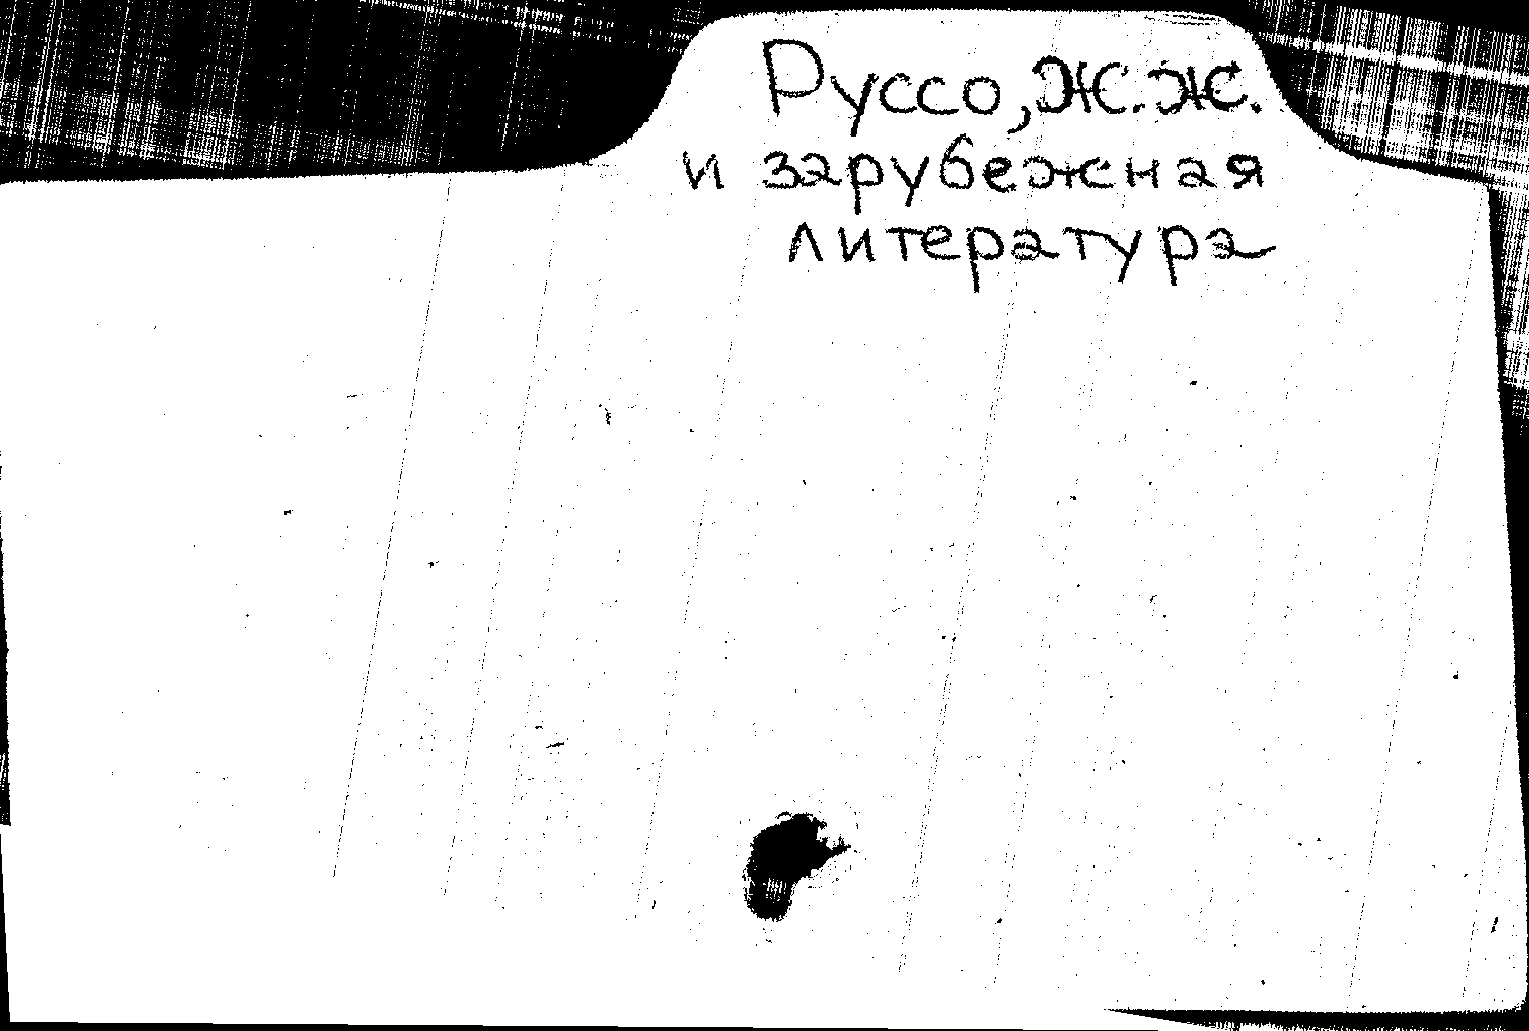 Руссо, Ж.Ж.
и зарубежная
литература